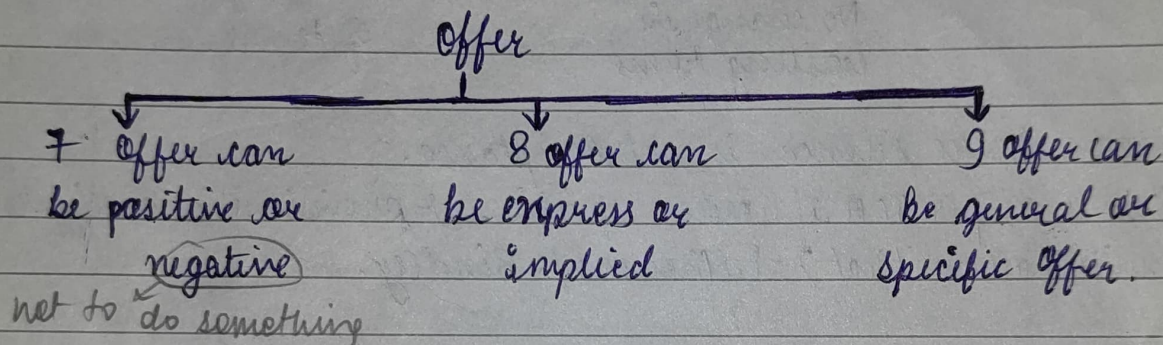 Offer
7 Offer can
be positive or
negative
not to do something
8 offer can
be express or
implied
9 offer can
be general or
specific offer.